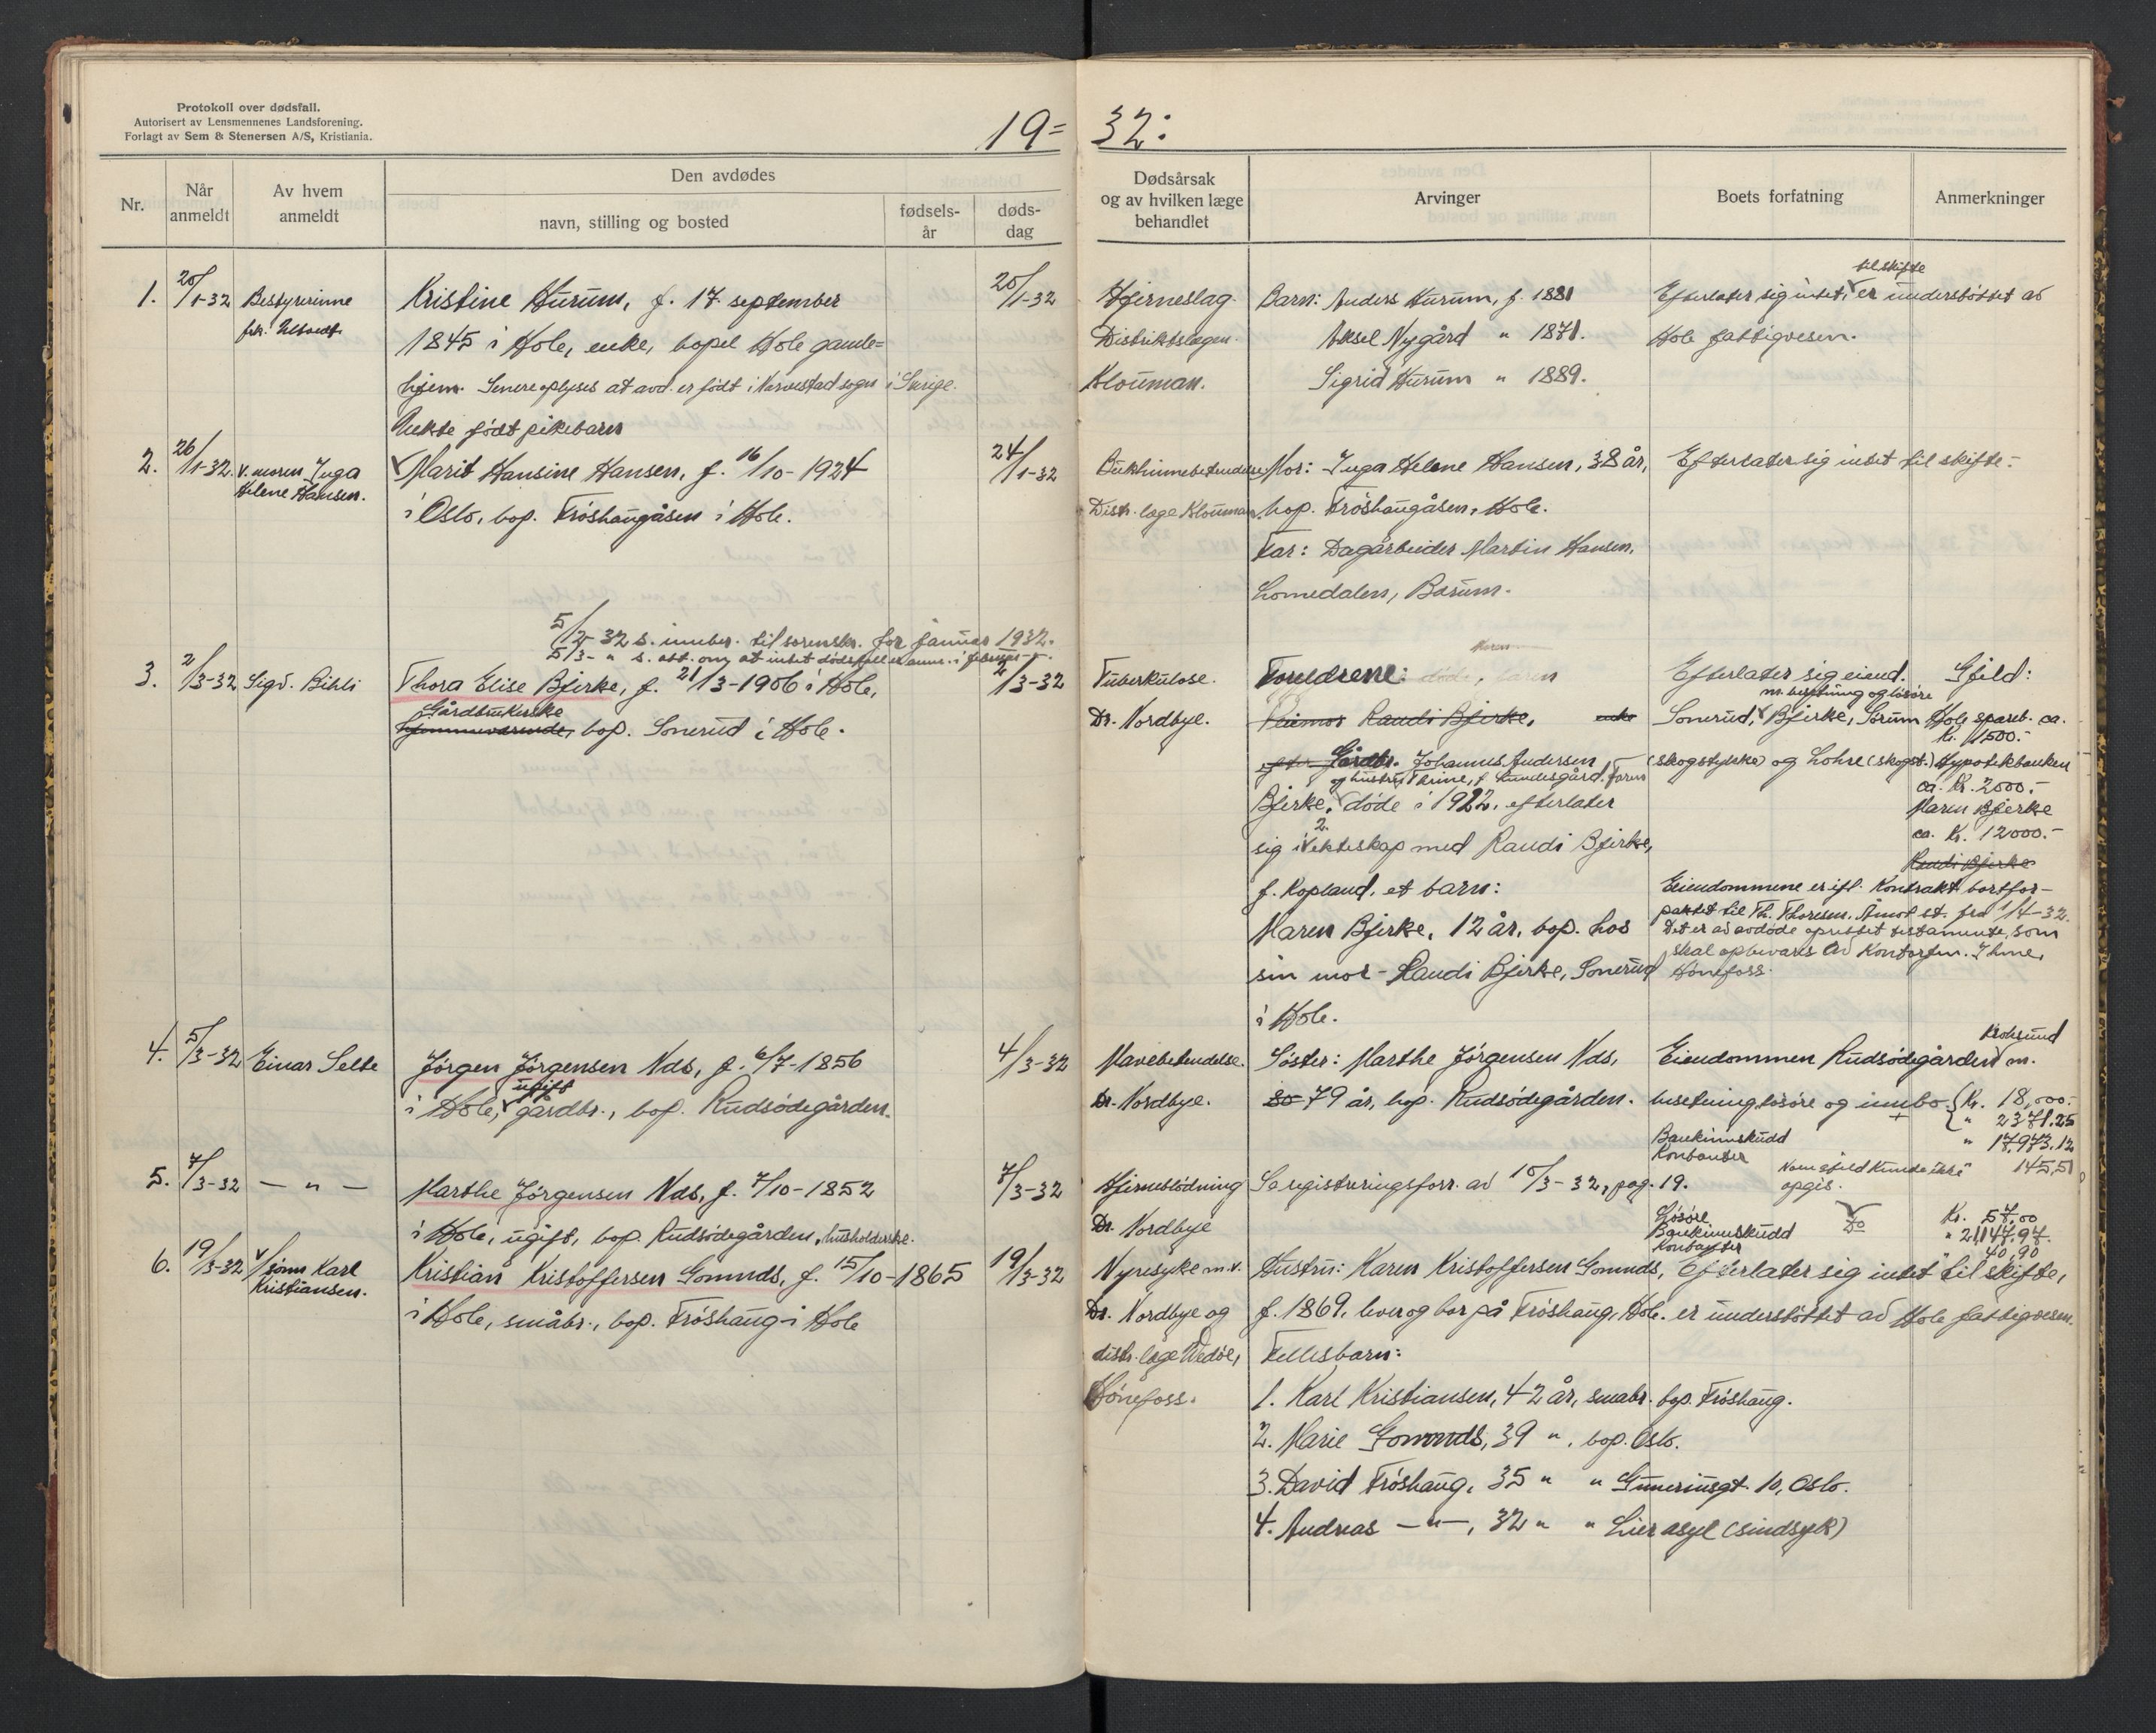 Protokoll over dødsfall.
Autorisert av Lensmennenes Landsforening.
Forlagt av Sem & Stenersen A/S, Kristiania.
19=32:
Nr.
Når anmeldt
Av hvem anmeldt
Den avdødes
navn, stilling og bosted
fødsels-år
døds-dag
Dødsårsak og av hvilken læge behandlet
Arvinger
Boets forfatning
Anmerkninger
1. 20/1-32 Bestyrerinne
frk.
Kristine Hurum, f. 17. september
1845 i Hole, enke, bopel Hole gamle=
hjem. Senere oplyses at avd. er født i sogn i Sverige.
20/1-32
Hjerneslag.
Distriktslægen
Klouman.
Barn: Anders Hurum, f. 1881
Aksel Nygård " 1871.
Sigrid Hurum " 1889.
til skifte
Efterlater sig intet, er understøttet av
Hole fattigvesen.
2. 26/1-32. v. moren Inga
Helene Hansen.
Uekte født pikebarn
Marit Hansine Hansen, f. 16/10-1924
i Oslo, bop. Frøshaugåsen i Hole.
24/1-32
Bukhinnebetendelse
Distr. læge Klouman.
Mor: Inga Helene Hansen, 38 år,
bop. Frøshaugåsen, Hole.
Far: Dagarbeider Martin Hansen,
Lomedalen, Bærum.
Efterlater sig intet til skifte.
5/2-32 s. innber. til sorenskr. for januar 1932.
5/3- " s. att. om at intet dødsfall er anm. i februar
3. 2/3-32 Sigv. Bihli
Thora Elise Bjerke, f. 21/3-1906 i Hole,
Gårdbrukerske
hjemmeværende, bop. Sonerud i Hole.
2/3-32
Tuberkulose.
Dr. Nordbye.
Foreldrene:
Pleiemor Randi Bjerke, enke
efter Gårdbr. Johannes Andersen
og hustru Thrine, f. Lundesgård. Faren
Bjerke, døde i 1922, efterlater
sig i 2. ekteskap med Randi Bjerke,
f. Kopland, et barn:
Maren Bjerke, 12 år, bop. hos
sin mor - Randi Bjerke, Sonerud
i Hole.
Efterlater sig eiend.
m. besetning og løsøre
Sonerud, Bjerke, Sørum
(skogstykke) og Lohre (skogst.)
Eiendommene er ifl. Kontrakt bortfor-
paktet til Th. Thoresen, Åmot st. fra 1/4-32.
Det er av avdøde oprettet testamente, som
skal opbevares av Kontorfm. Ihme,
Hønefoss.
Gjeld:
Hole spareb. ca.
Kr. 1500.-
Hypotekbanken
ca. Kr. 2000.-
Maren Bjerke
ca. Kr. 12000.-
Randi Bjerke
4. 5/3-32 Einar Selte
Jörgen Jörgensen Nds, f. 6/7-1856
i Hole, ugift gårdbr., bop. Rudsødegården.
4/3-32
Mavebetendelse.
Dr. Nordbye.
Søster: Marthe Jörgensen Nds,
80 79 år, bop. Rudsødegården.
Eiendommen Rudsødegården Kroksund m.
besetning, løsøre og innbo. Kr. 18,000.-
" 2371.25
Bankinnskudd " 17,973.12
Kontanter 145,51
5. 7/3-32 — " —
Marthe Jörgensen Nds, f. 7/10-1852
i Hole, ugift, bop. Rudsødegården, husholderske.
7/3-32
Hjerneblødning
Dr. Nordbye
Se registreringsforr. av 10/3-32, pag. 19.
Noen gjeld kunde ikke
opgis.
Løsøre Kr. 57,00
Bankinnskudd Do " 21147,97.
Kontanter " 40,90
6. 19/3-32 v/sønn Karl
Kristiansen.
Kristian Kristoffersen Gomnds, f. 15/10-1865
i Hole, småbr., bop. Frøshaug i Hole
19/3-32
Nyresyke m.v.
Dr. Nordbye og
distr. læge Wedøe,
Hønefoss.
Hustru: Karen Kristoffersen Gomnds,
f. 1869, lever og bor på Frøshaug, Hole.
Fellesbarn:
1. Karl Kristiansen, 42 år, småbr. bop. Frøshaug.
2. Marie Gomnds, 39 ", bop. Oslo.
3. David Frøshaug, 35 " " Guneriusgt. 10, Oslo.
4. Andreas — " —, 32 " " Lier asyl (sindsyk)
Efterlater sig intet til skifte,
er understøttet av Hole fattigvesen.